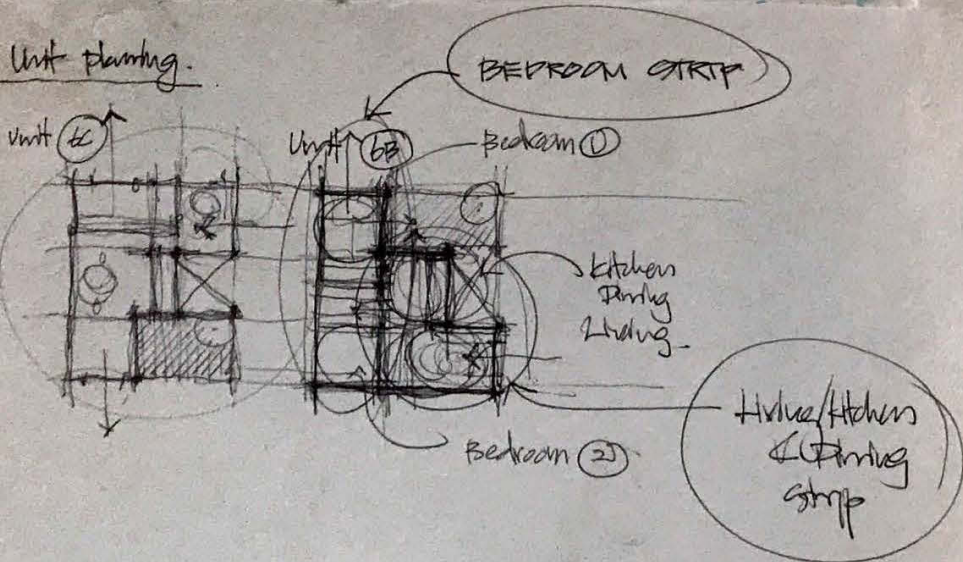 Unit planning.
BEDROOM STRIP
Unit 6C
Unit 6B
Bedroom 1
Kitchen
Dining
Living
Bedroom 2
Living/Kitchen
Dining
Strip